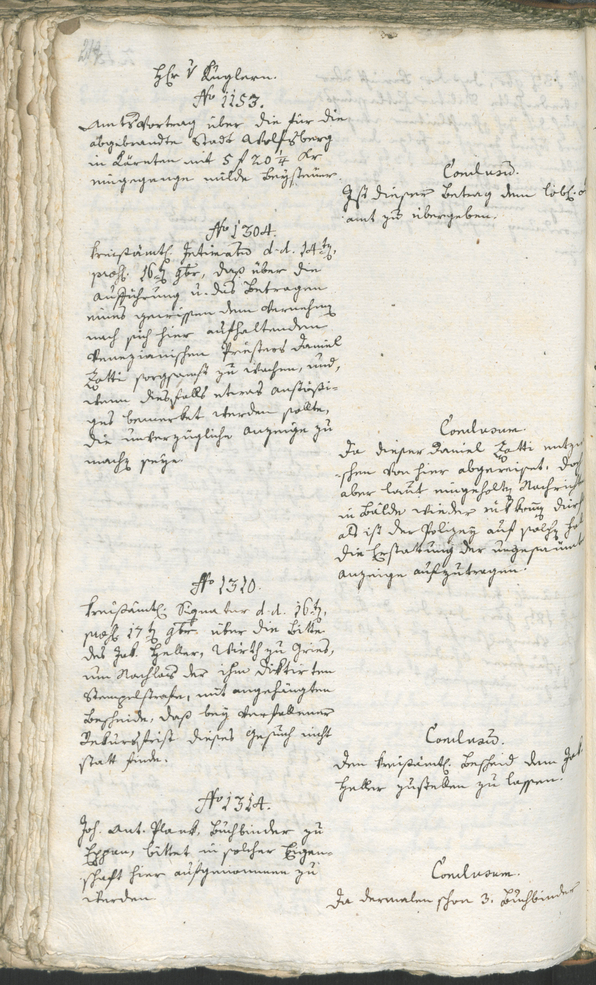 Hr. v Kuglern.
No 1153.
Amtsvortrag über die für die
abgebrandte Stadt Wolfsberg
in Kärnten mit 5 f 20 1/4 Kr
eingegangene milde Beysteuer.
Conclusū.
Ist dieser Betrag dem löbl.
amt zu übergeben.
No 1304.
Kreisämtl. Intimation d.d. 14t.,
praes. 16t. 9br, daß über die
Aufführung u. das Betragen
eines gewissen dem Vernehmen
nach sich hier aufhaltenden
Venezianischen Priesters Daniel
Zatti sorgsamst zu wachen, und,
wenn diesfalls etwas anstößi-
ges bemerket werden sollte,
die unverzügliche Anzeige zu
machen seye.
Conclusum.
Da dieser Daniel Zatti
von hier abgereiset,
aber laut eingeholter Nachricht
in Bälde wieder
als ist der Polizey auf solchen
die Erstattung der
Anzeige aufzutragen.
No 1310.
Kreisämtl. Signatur d.d. 16t.,
praes. 17t. 9br. über die Bitte
des Jak. Heller, Wirth zu Gries,
um Nachlas der ihm diktirten
Stempelstrafe, mit angehängten
Bescheide, daß bey verfallener
Rekursfrist dieses Gesuch nicht
statt finde.
Conclusū.
Den kreisämtl. Bescheid dem Jak.
Heller zustellen zu lassen.
No 1314.
Joh. Ant. Plank, Buchbinder zu
Eppan, bittet in solcher Eigen-
schaft hier aufgenommen zu
werden
Conclusum.
Da dermalen schon 3. Buchbinder